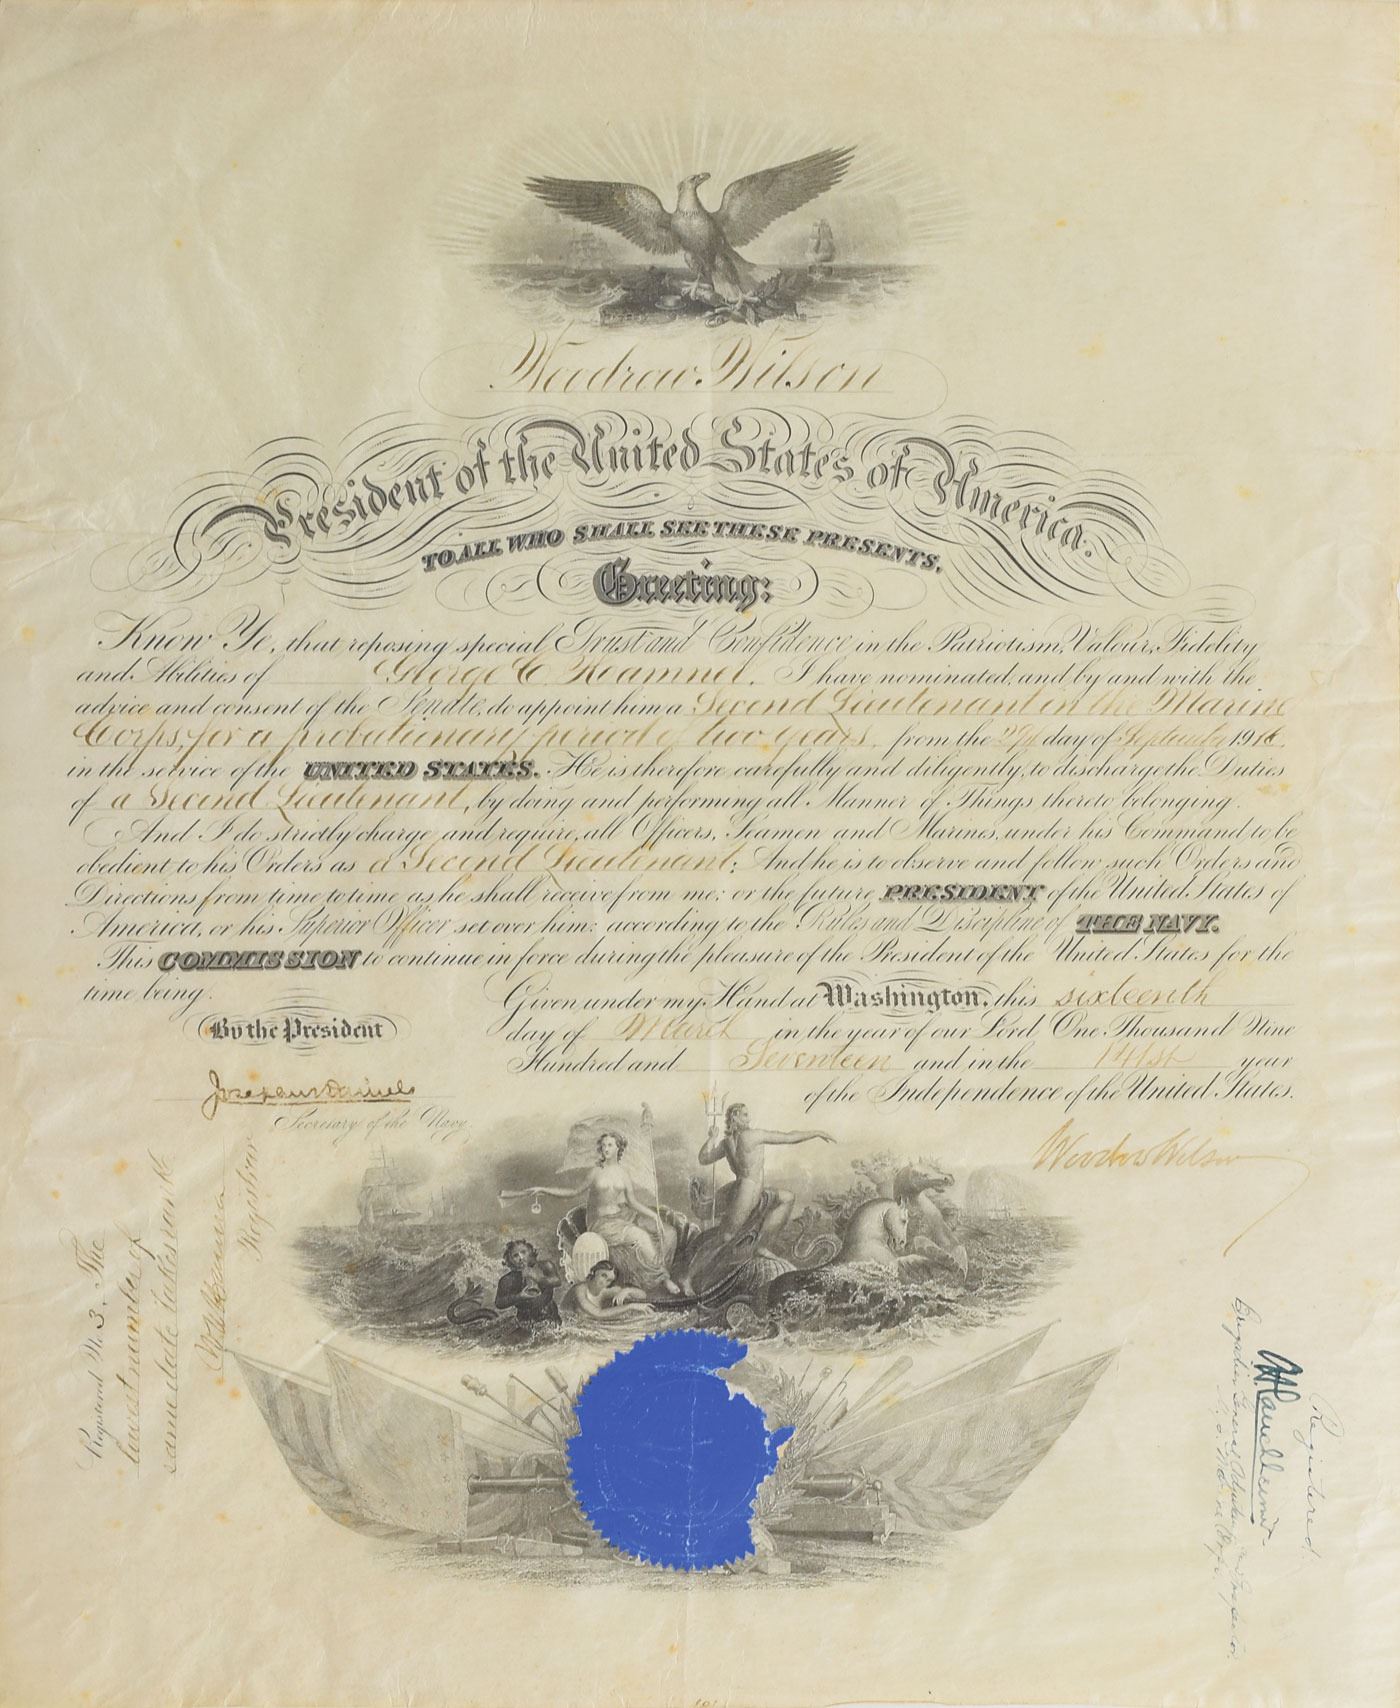 Woodrow Wilson
President of the United States of America.
TO ALL WHO SHALL SEE THESE PRESENTS,
Greeting:
Know Ye, that reposing special Trust and Confidence in the Patriotism, Valour, Fidelity
and Abilities of George C. Hamner, I have nominated, and by and with the
advice and consent of the Senate, do appoint him a Second Lieutenant in the Marine
Corps, for a probationary period of two years, from the day of September 1916
in the service of the UNITED STATES. He is therefore carefully and diligently, to discharge the Duties
of a Second Lieutenant, by doing and performing all Manner of Things thereto belonging.
And I do strictly charge, and require, all Officers, Seamen and Marines, under his Command to be
obedient to his Orders as a Second Lieutenant; And he is to observe and follow such Orders and
Directions from time to time as he shall receive from me; or the future PRESIDENT of the United States of
America, or his Superior Officer set over him; according to the Rules and Discipline of THE NAVY.
This COMMISSION to continue in force during the pleasure of the President of the United States for the
time being.
Given under my Hand at Washington, this sixteenth
day of March in the year of our Lord One Thousand Nine
Hundred and Seventeen and in the 141st year
of the Independence of the United States.
By the President
Josephus Daniels
Secretary of the Navy
Woodrow Wilson
Registered No 3. The
lowest number of
same date takes rank
Registrar
Registered
Brigadier General, Adjutant and Inspector